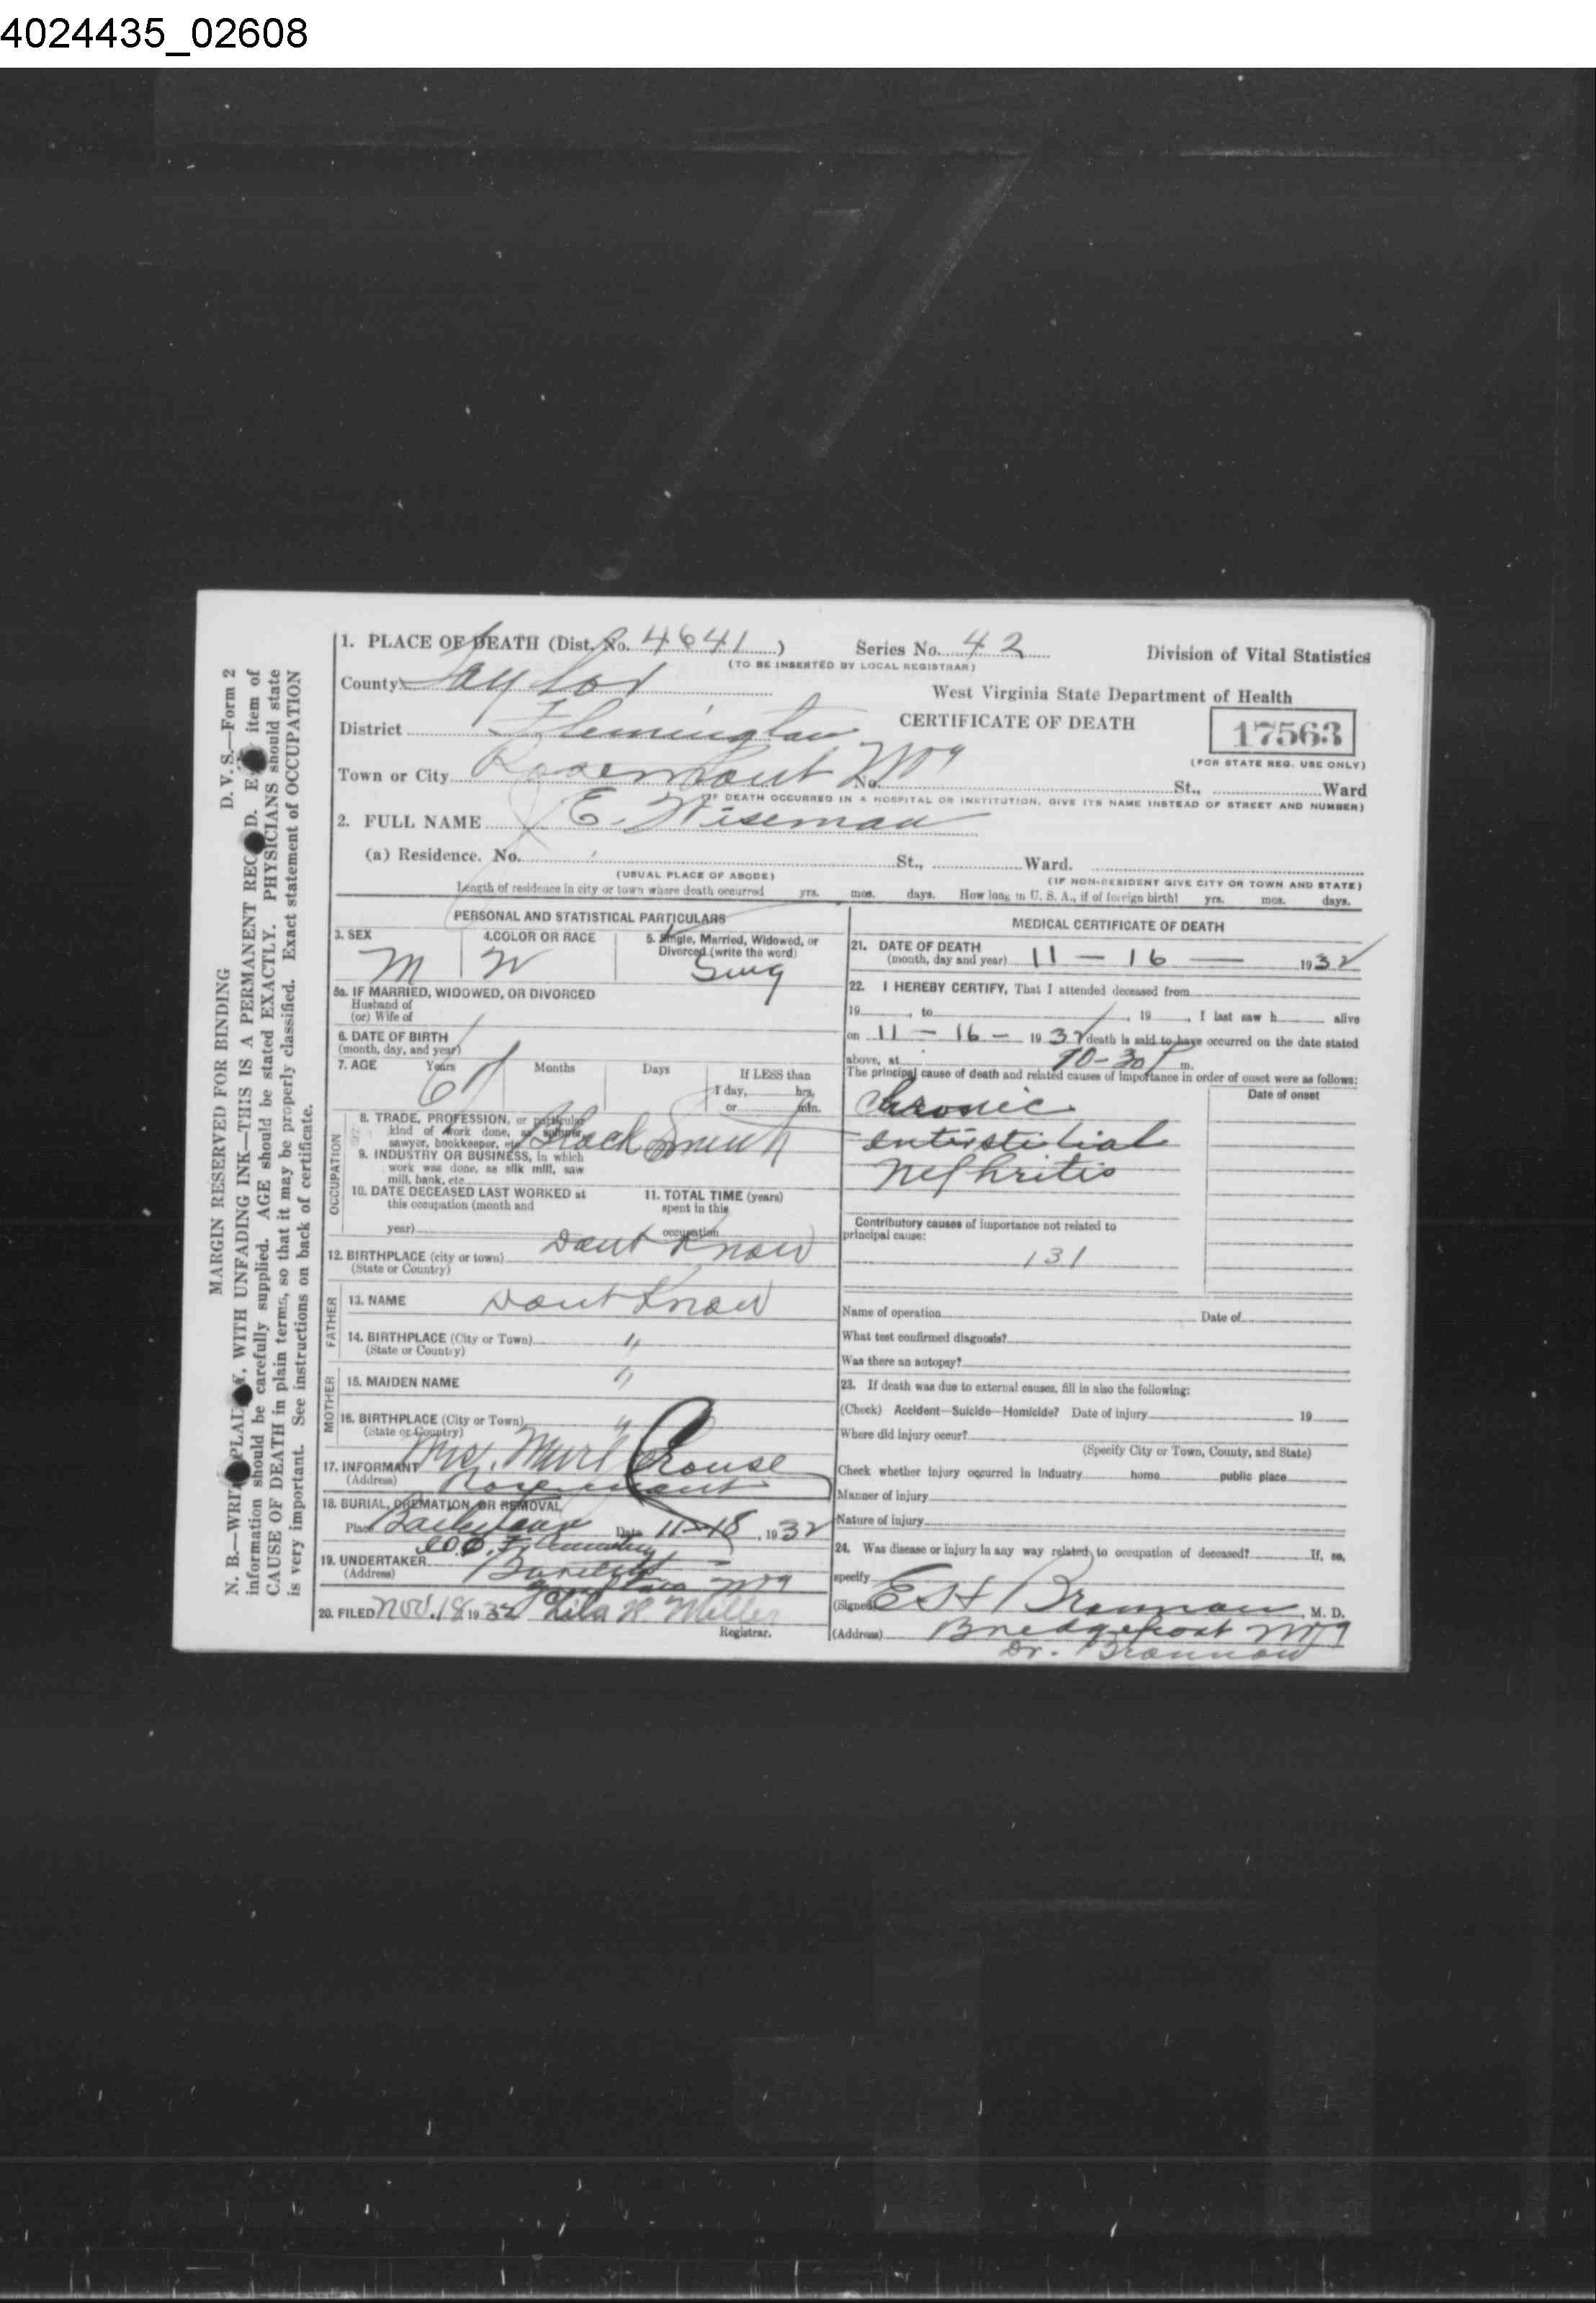 4024435_02608
MARGIN RESERVED FOR BINDING D. V. S.—Form 2
N. B.—WRITE PLAINLY, WITH UNFADING INK—THIS IS A PERMANENT RECORD. Every item of
information should be carefully supplied. AGE should be stated EXACTLY. PHYSICIANS should state
CAUSE OF DEATH in plain terms, so that it may be properly classified. Exact statement of OCCUPATION
is very important. See instructions on back of certificate.
1. PLACE OF DEATH (Dist. No. 4641) Series No. 42 Division of Vital Statistics
(TO BE INSERTED BY LOCAL REGISTRAR)
County Taylor West Virginia State Department of Health
District Flemington CERTIFICATE OF DEATH 17563
(FOR STATE REG. USE ONLY)
Town or City Rosemont No. St., Ward
(IF DEATH OCCURRED IN A HOSPITAL OR INSTITUTION, GIVE ITS NAME INSTEAD OF STREET AND NUMBER)
2. FULL NAME E. Wiseman
(a) Residence. No. St., Ward.
(USUAL PLACE OF ABODE) (IF NON-RESIDENT GIVE CITY OR TOWN AND STATE)
Length of residence in city or town where death occurred yrs. mos. days. How long in U. S. A., if of foreign birth? yrs. mos. days.
PERSONAL AND STATISTICAL PARTICULARS
3. SEX 4. COLOR OR RACE 5. Single, Married, Widowed, or
Divorced (write the word)
M W Sing
5a. IF MARRIED, WIDOWED, OR DIVORCED
Husband of
(or) Wife of
6. DATE OF BIRTH
(month, day, and year)
7. AGE Years Months Days If LESS than
1 day, hrs.
or min.
8. TRADE, PROFESSION, or particular
kind of work done, as spinner,
sawyer, bookkeeper, etc. Black Smith
9. INDUSTRY OR BUSINESS, in which
work was done, as silk mill, saw
mill, bank, etc.
OCCUPATION
10. DATE DECEASED LAST WORKED at 11. TOTAL TIME (years)
this occupation (month and spent in this
year) occupation
12. BIRTHPLACE (city or town) Dont Know
(State or Country)
FATHER
13. NAME Dont Know
14. BIRTHPLACE (City or Town) "
(State or Country)
MOTHER
15. MAIDEN NAME "
16. BIRTHPLACE (City or Town) "
(State or Country)
17. INFORMANT Mrs. Murl Crouse
(Address) Rosemont
18. BURIAL, CREMATION, OR REMOVAL
Place Date 11-18, 1932
19. UNDERTAKER
(Address)
20. FILED Nov. 18 1932 Lila R Miller
Registrar.
MEDICAL CERTIFICATE OF DEATH
21. DATE OF DEATH
(month, day and year) 11 — 16 — 1932
22. I HEREBY CERTIFY, That I attended deceased from
19, to, 19, I last saw h alive
on 11 — 16 — 1932 death is said to have occurred on the date stated
above, at 10-30 P m.
The principal cause of death and related causes of importance in order of onset were as follows:
Date of onset
Chronic
interstitial
Nephritis
Contributory causes of importance not related to
principal cause:
131
Name of operation Date of
What test confirmed diagnosis?
Was there an autopsy?
23. If death was due to external causes, fill in also the following:
(Check) Accident—Suicide—Homicide? Date of injury 19
Where did injury occur?
(Specify City or Town, County, and State)
Check whether injury occurred in industry home public place
Manner of injury
Nature of injury
24. Was disease or injury in any way related to occupation of deceased? If, so,
specify
(Signed) E S H Brannon, M. D.
(Address) Bridgeport
Dr. Brannon